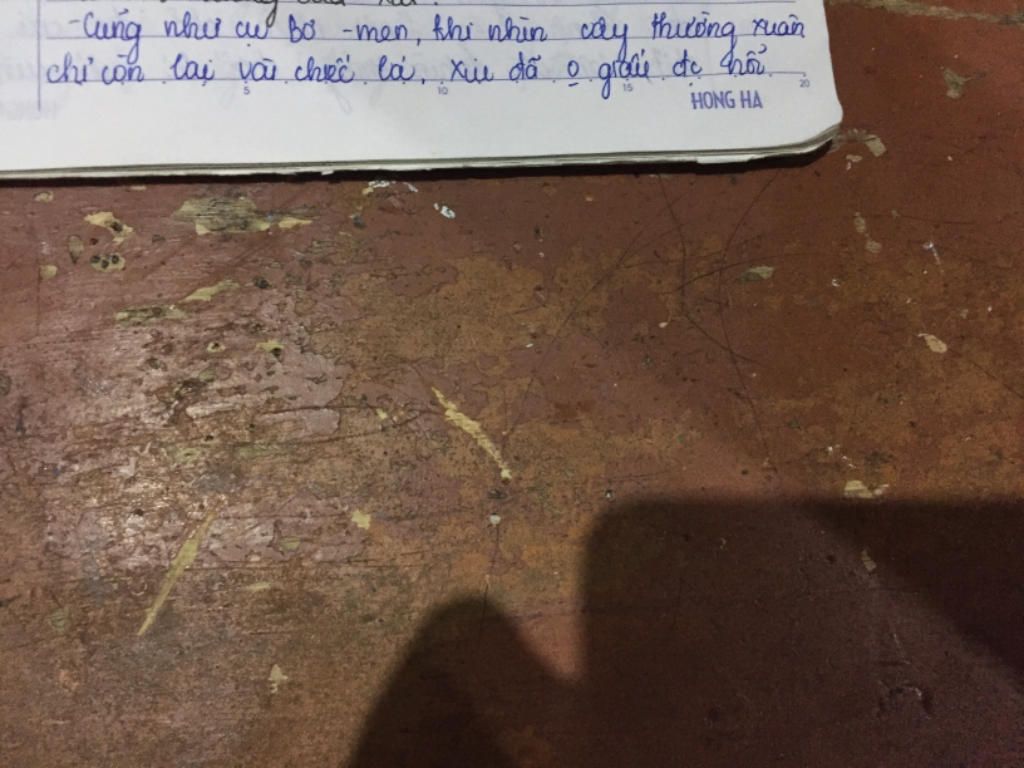 - Cũng như cụ Bơ-men, khi nhìn cây thường xuân
chỉ còn lại vài chiếc lá, Xiu đã o giấu đc nổi
5 10 15 20
HONG HA